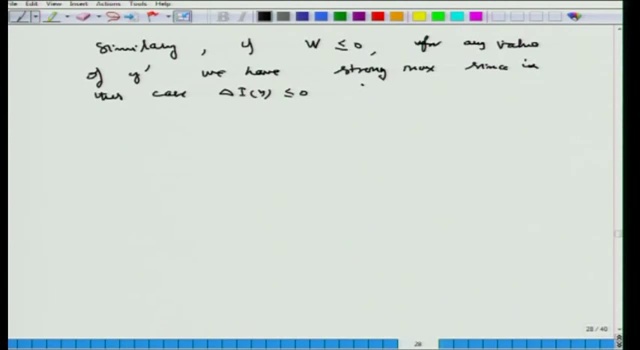 View Insert Actions Tools Help
Similary, if W ≤ 0, for any value
of y' we have strong max since in
this case ΔI(y) ≤ 0
28 / 40
28